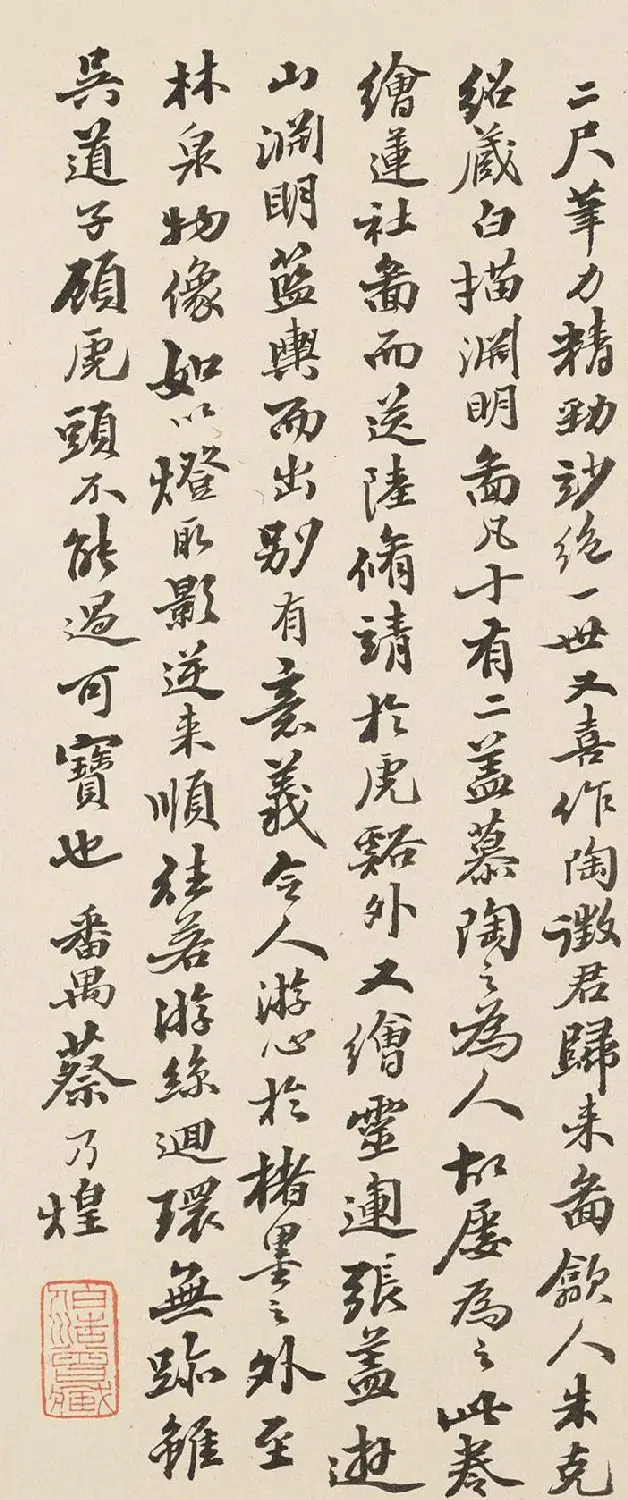 二尺筆力精勁訬絶一世又喜作陶徵君歸来啚歙人朱克
紹蔵白描淵明啚凡十有二盖慕陶之為人故屡為之此巻
繪蓮社啚而送陸脩靖於虎谿外又繪靈運張盖遊
山淵明藍輿而出别有意義令人游心於楮墨之外至
林泉物像如以燈取影逆来順往若游絲迴環無跡雖
吳道子顧虎頭不能過可寶也 番禺蔡乃煌